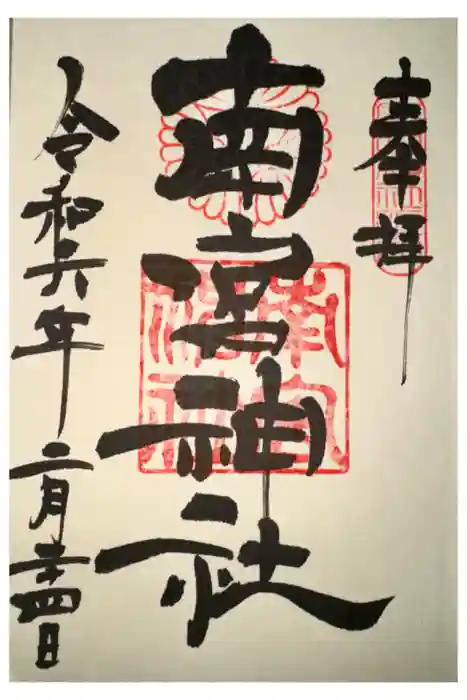 奉拝
南宮神社
令和六年二月二十四日